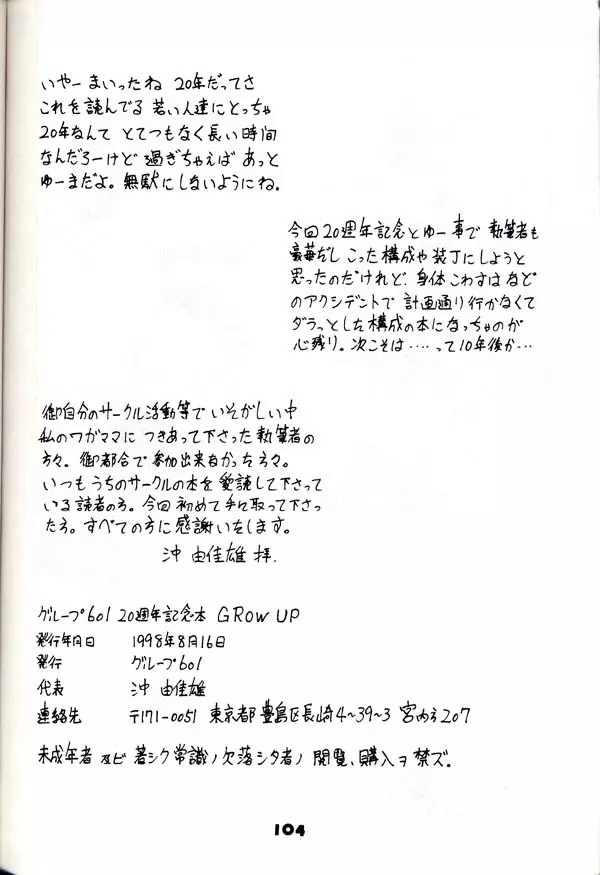 いやー まいったね 20年だってさ
これを読んでる 若い人達にとっちゃ
20年なんて とてつもなく長い時間
なんだろーけど 過ぎちゃえば あっと
ゆーまだよ。無駄にしないようにね。
今回20週年記念とゆー事で 執筆者も
豪華だし こった構成や装丁にしようと
思ったのだけれど、身体こわすは など
のアクシデントで 計画通り行かなくて
ダラっとした構成の本になっちゃのが
心残り。次こそは……って10年後か…
御自分のサークル活動等で いそがしい中
私のワガママに つきあって下さった執筆者の
方々。御都合で参加出来なかった方々。
いつもうちのサークルの本を愛読して下さって
いる読者の方。今回初めて手に取って下さっ
た方。すべての方に感謝いたします。
沖 由佳雄 拝.
グループ601 20週年記念本 GROW UP
発行年月日 1998年8月16日
発行 グループ601
代表 沖 由佳雄
連絡先 〒171-0051 東京都豊島区長崎4-39-3 宮め方207
未成年者 及ビ 著シク常識ノ欠落シタ者ノ 閲覧、購入ヲ禁ズ。
104